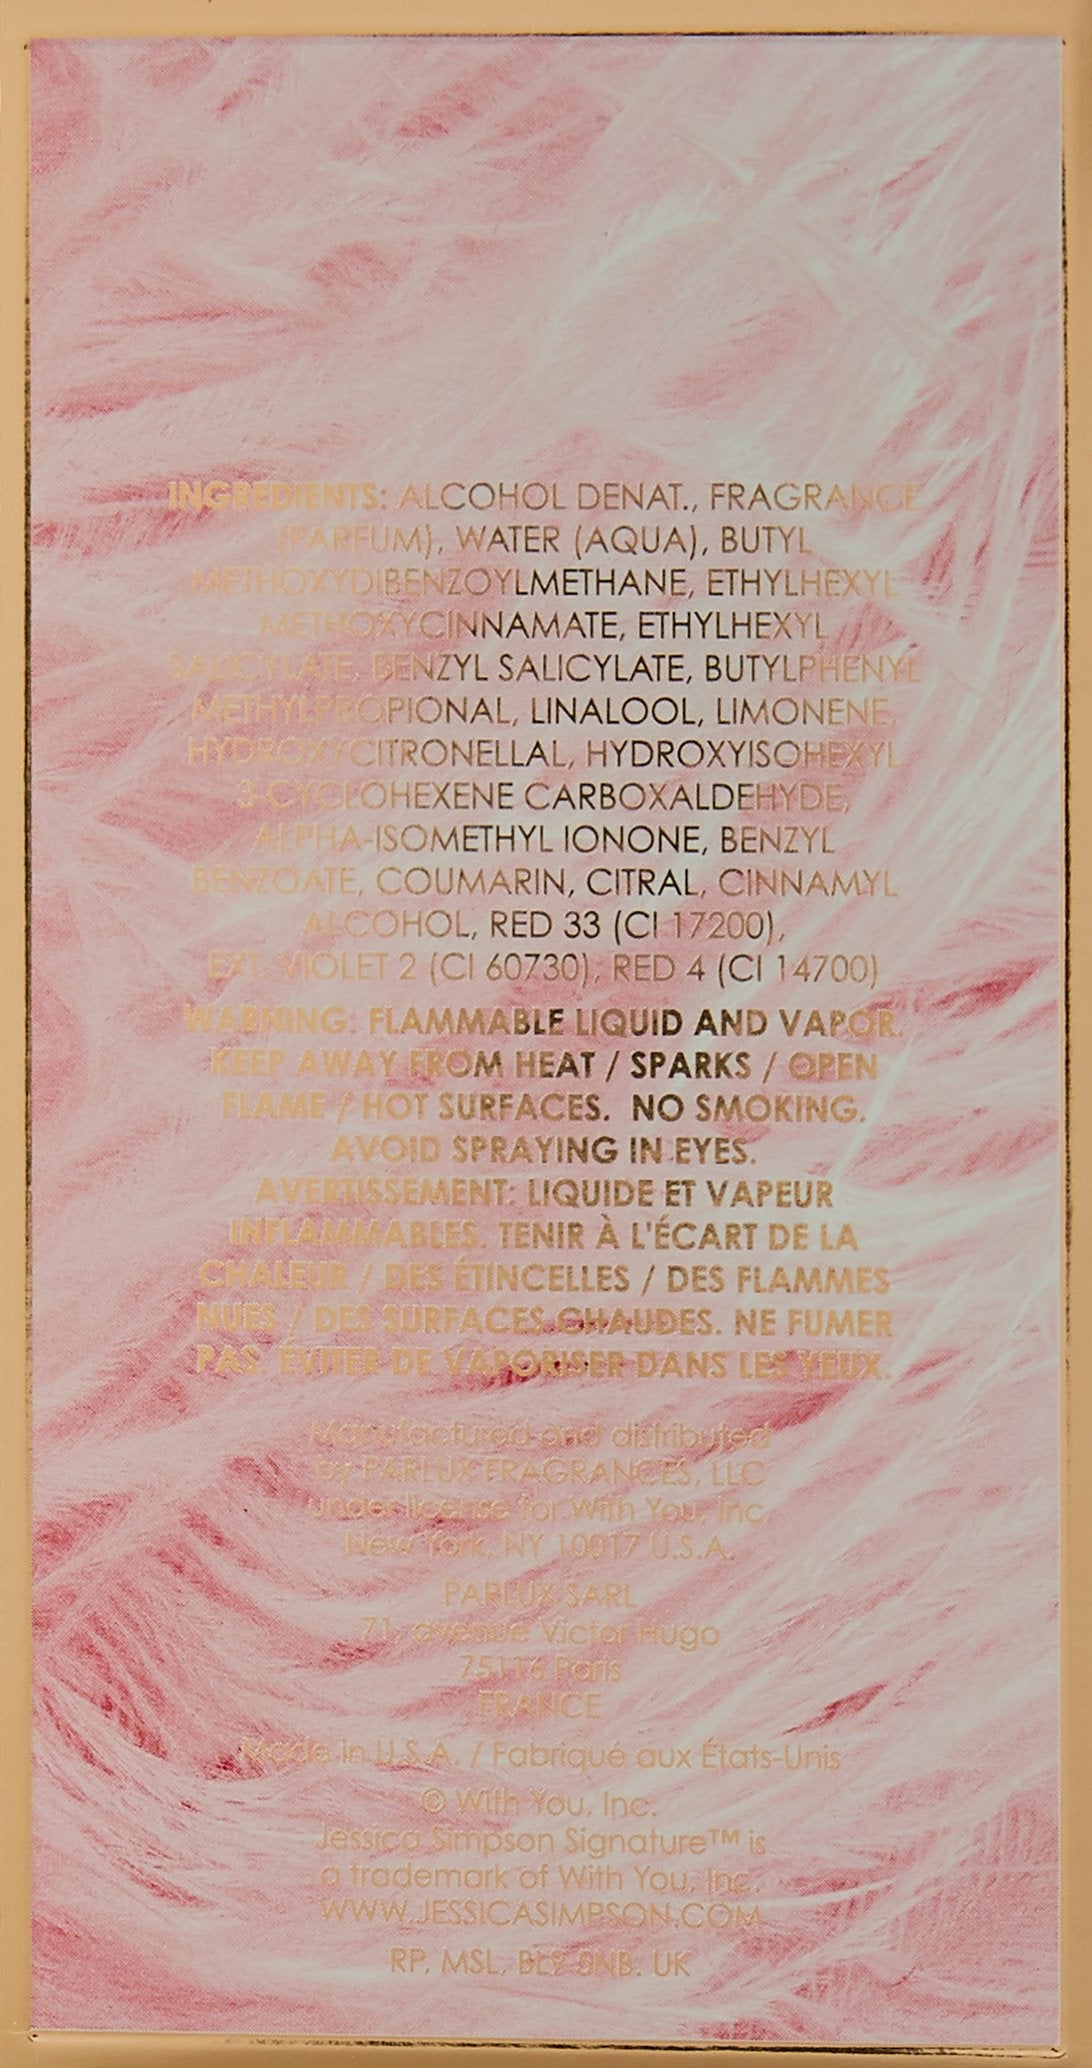 INGREDIENTS: ALCOHOL DENAT., FRAGRANCE
(PARFUM), WATER (AQUA), BUTYL
METHOXYDIBENZOYLMETHANE, ETHYLHEXYL
METHOXYCINNAMATE, ETHYLHEXYL
SALICYLATE, BENZYL SALICYLATE, BUTYLPHENYL
METHYLPROPIONAL, LINALOOL, LIMONENE,
HYDROXYCITRONELLAL, HYDROXYISOHEXYL
3-CYCLOHEXENE CARBOXALDEHYDE,
ALPHA-ISOMETHYL IONONE, BENZYL
BENZOATE, COUMARIN, CITRAL, CINNAMYL
ALCOHOL, RED 33 (CI 17200),
EXT. VIOLET 2 (CI 60730), RED 4 (CI 14700)
WARNING: FLAMMABLE LIQUID AND VAPOR.
KEEP AWAY FROM HEAT / SPARKS / OPEN
FLAME / HOT SURFACES. NO SMOKING.
AVOID SPRAYING IN EYES.
AVERTISSEMENT: LIQUIDE ET VAPEUR
INFLAMMABLES. TENIR À L'ÉCART DE LA
CHALEUR / DES ÉTINCELLES / DES FLAMMES
NUES / DES SURFACES CHAUDES. NE FUMER
PAS. ÉVITER DE VAPORISER DANS LES YEUX.
Manufactured and distributed
by PARLUX FRAGRANCES, LLC
under license for With You, Inc.
New York, NY 10017 U.S.A.
PARLUX SARL
71, avenue Victor Hugo
75116 Paris
FRANCE
Made in U.S.A. / Fabriqué aux États-Unis
© With You, Inc.
Jessica Simpson Signature™ is
a trademark of With You, Inc.
WWW.JESSICASIMPSON.COM
RP, MSL, BL9 UK